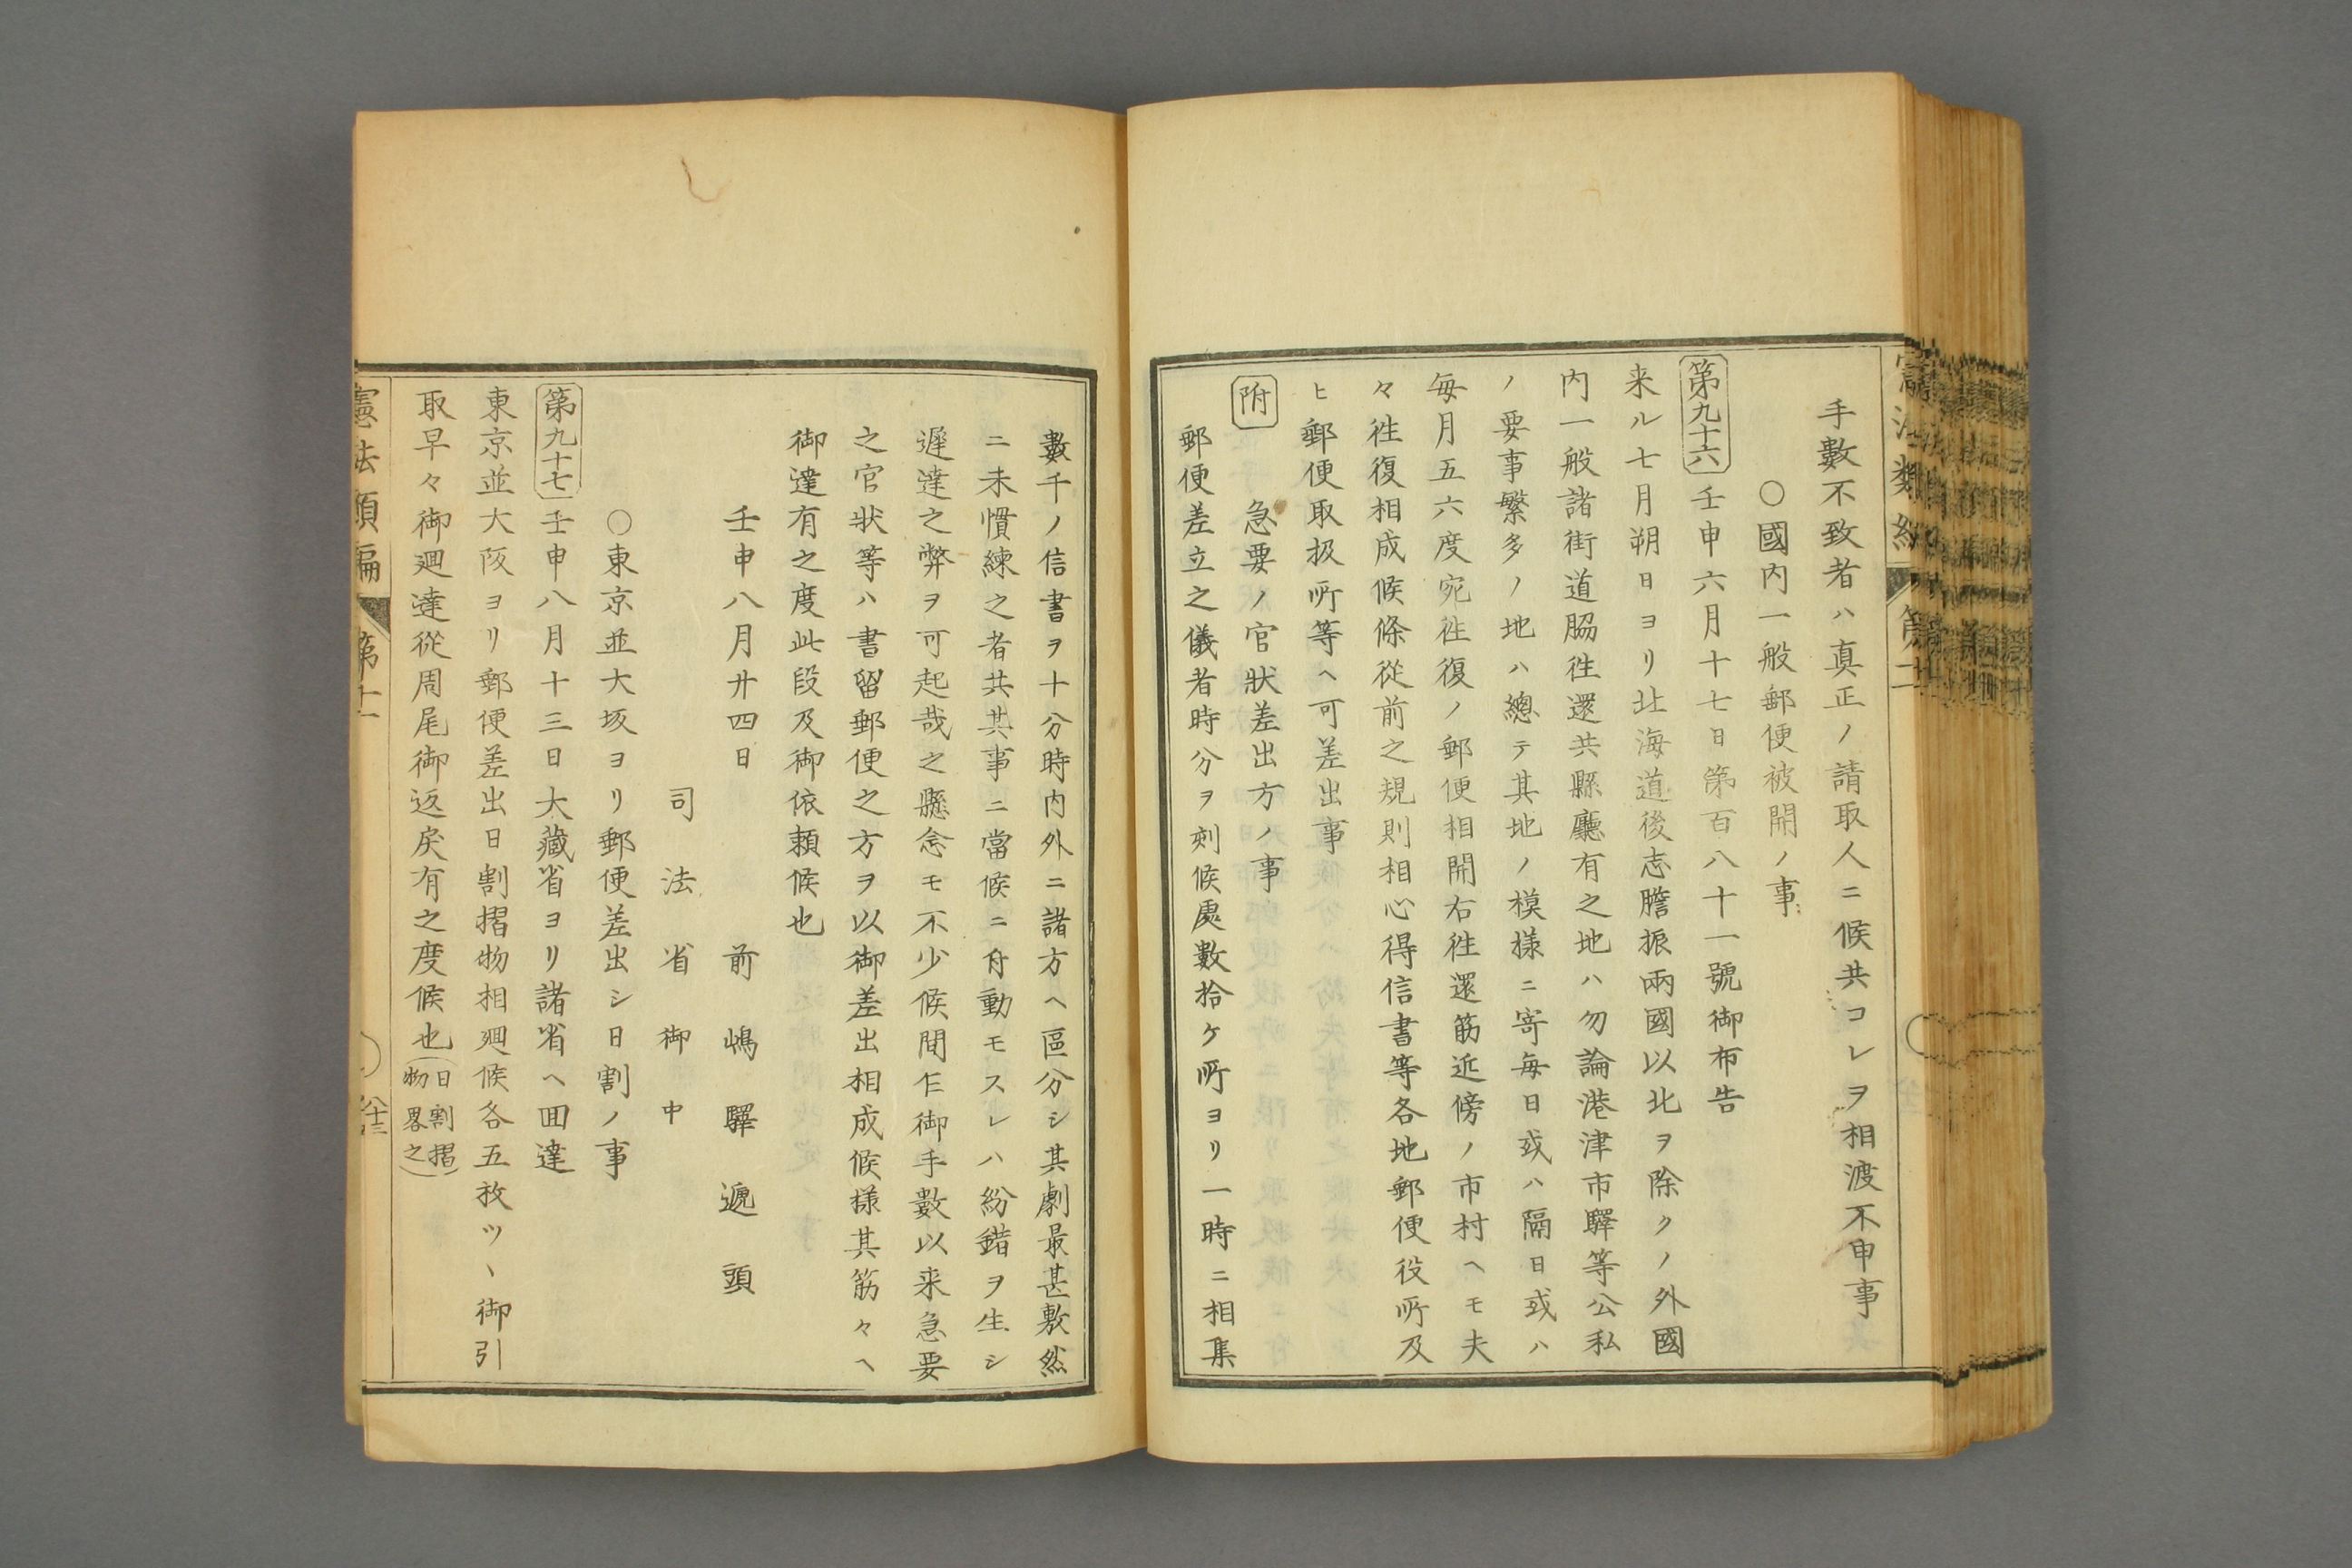 手數不致者ハ真正ノ請取人ニ候共コレヲ相渡不申事
〇國内一般郵便被開ノ事
第九十六 壬申六月十七日第百八十一號御布告
来ル七月朔日ヨリ北海道後志膽振兩國以北ヲ除クノ外國
内一般諸街道脇往還共縣廳有之地ハ勿論港津市驛等公私
ノ要事繁多ノ地ハ總テ其地ノ模様ニ寄毎日或ハ隔日或ハ
毎月五六度宛往復ノ郵便相開右往還筋近傍ノ市村ヘモ夫
々往復相成候條從前之規則相心得信書等各地郵便役所及
ヒ郵便取扱所等ヘ可差出事
附 急要ノ官狀差出方ノ事
郵便差立之儀者時分ヲ刻候處數拾ケ所ヨリ一時ニ相集
數千ノ信書ヲ十分時内外ニ諸方ヘ區分シ其劇最甚敷然
ニ未慣練之者共其事ニ當候ニ付動モスレハ紛錯ヲ生シ
遲達之弊ヲ可起哉之懸念モ不少候間乍御手數以来急要
之官狀等ハ書留郵便之方ヲ以御差出相成候様其筋々ヘ
御達有之度此段及御依頼候也
壬申八月廿四日
前嶋驛遞頭
司法省御中
〇東京並大坂ヨリ郵便差出シ日割ノ事
第九十七 壬申八月十三日大藏省ヨリ諸省ヘ囬達
東京並大阪ヨリ郵便差出日割摺物相廻候各五枚ツヽ御引
取早々御廻達從周尾御返戻有之度候也(日割摺物畧之)
憲法類編 第十一
八十三